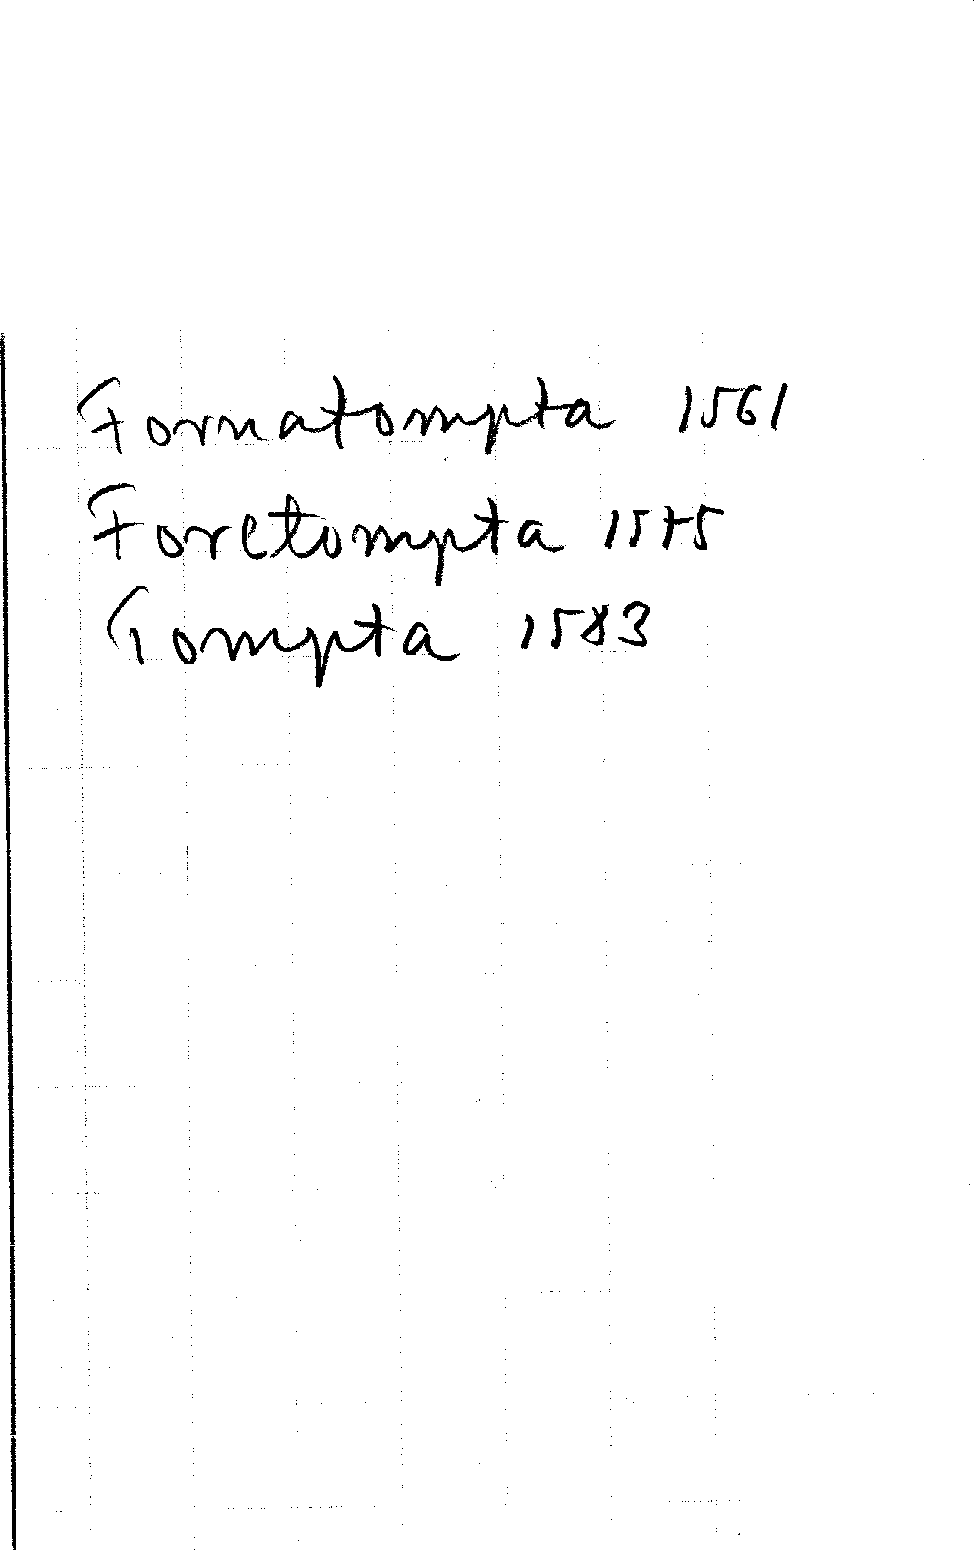 Fornatompta 1561
Foretompta 1575
Tompta 1583